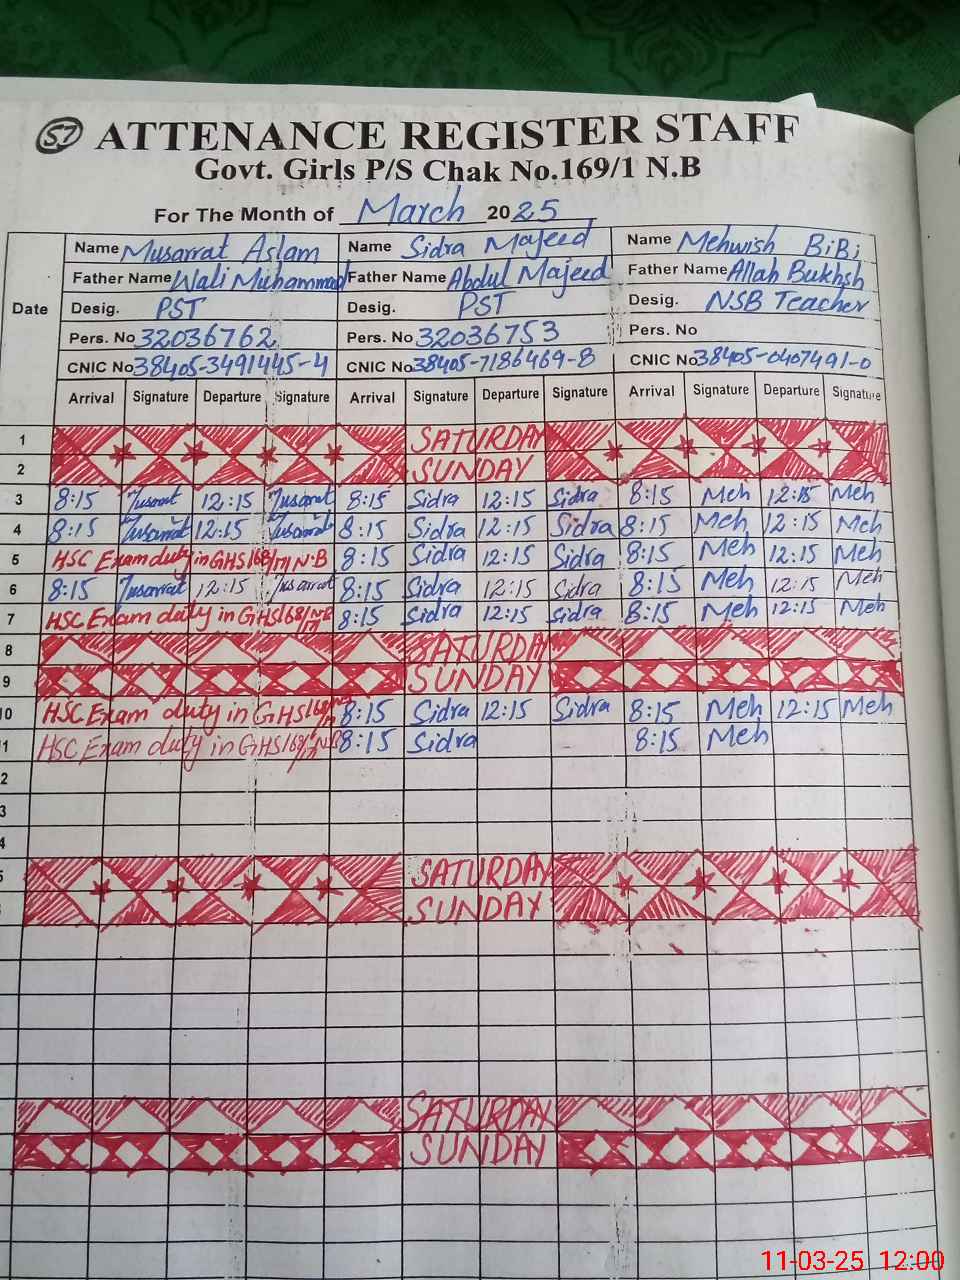 57 ATTENANCE REGISTER STAFF
Govt. Girls P/S Chak No.169/1 N.B
For The Month of March 2025
Date
Name Musarrat Aslam Name Sidra Majeed Name Mehwish BiBi
Father Name Wali Muhammad Father Name Abdul Majeed Father Name Allah Bukhsh
Desig. PST Desig. PST Desig. NSB Teacher
Pers. No 32036762 Pers. No 32036753 Pers. No
CNIC No 38405-3491445-4 CNIC No 38405-7186469-8 CNIC No 38405-0407491-0
Arrival Signature Departure Signature Arrival Signature Departure Signature Arrival Signature Departure Signature
1 SATURDAY
2 SUNDAY
3 8:15 Musarrat 12:15 Musarrat 8:15 Sidra 12:15 Sidra 8:15 Meh 12:15 Meh
4 8:15 Musarrat 12:15 Musarrat 8:15 Sidra 12:15 Sidra 8:15 Meh 12:15 Meh
5 HSC Exam duty in GHS 168/ N.B 8:15 Sidra 12:15 Sidra 8:15 Meh 12:15 Meh
6 8:15 Musarrat 12:15 Musarrat 8:15 Sidra 12:15 Sidra 8:15 Meh 12:15 Meh
7 HSC Exam duty in GHS 168/ NB 8:15 Sidra 12:15 Sidra 8:15 Meh 12:15 Meh
8 SATURDAY
9 SUNDAY
10 HSC Exam duty in GHS 8:15 Sidra 12:15 Sidra 8:15 Meh 12:15 Meh
1 HSC Exam duty in GHS 168/ NB 8:15 Sidra 8:15 Meh
2
3
4
5 SATURDAY
SUNDAY
SATURDAY
SUNDAY
11-03-25 12:00